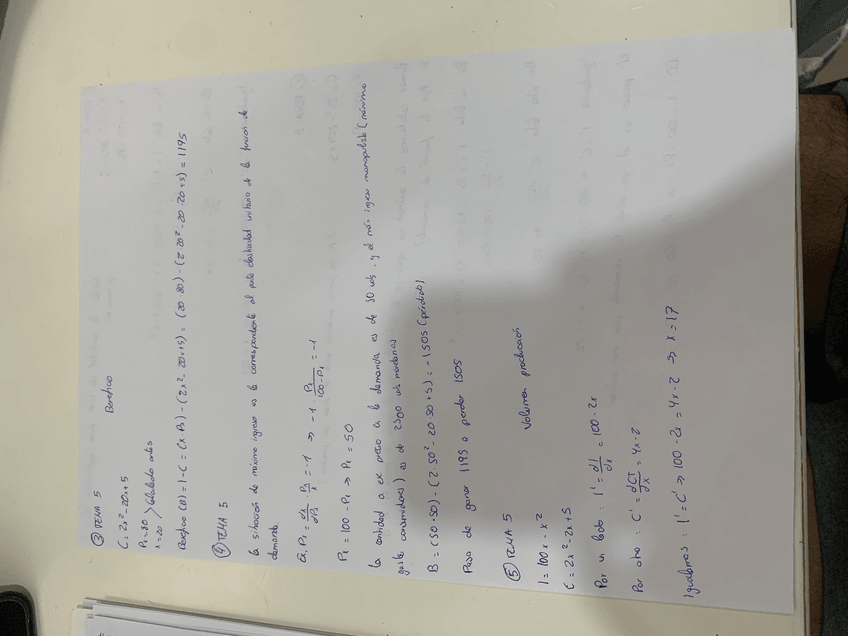 ③ TEMA 5
Beneficio
C = 2x² - 20x + 5
P₁ = 80
x = 20 > Calculado antes
Beneficio (B) = I - C = (x · P₁) - (2x² - 20x + 5) = (20 · 80) - (2 · 20² - 20 · 20 + 5) = 1195
④ TEMA 5
La situación de máximo ingreso es la correspondiente al punto elasticidad unitaria de la función de
demanda
= dx/dP₁ · P₁/x = -1 ⇒ -1 · P₁/100-P₁ = -1
P₁ = 100 - P₁ ⇒ P₁ = 50
La cantidad a ese precio en la demanda es de 50 uds, y el máx ingreso monopolista (máximo
gasto consumidores) es de 2500 uds monetarias
B = (50 · 50) - (2 · 50² - 20 · 50 + 5) = -1505 (pérdida)
Pasa de ganar 1195 a perder 1505
⑤ TEMA 5
Volumen producción
I = 100x - x²
C = 2x² - 2x + 5
Por un lado : I' = dI/dx = 100 - 2x
Por otro : C' = dCT/dx = 4x - 2
Igualamos : I' = C' ⇒ 100 - 2x = 4x - 2 ⇒ x = 17